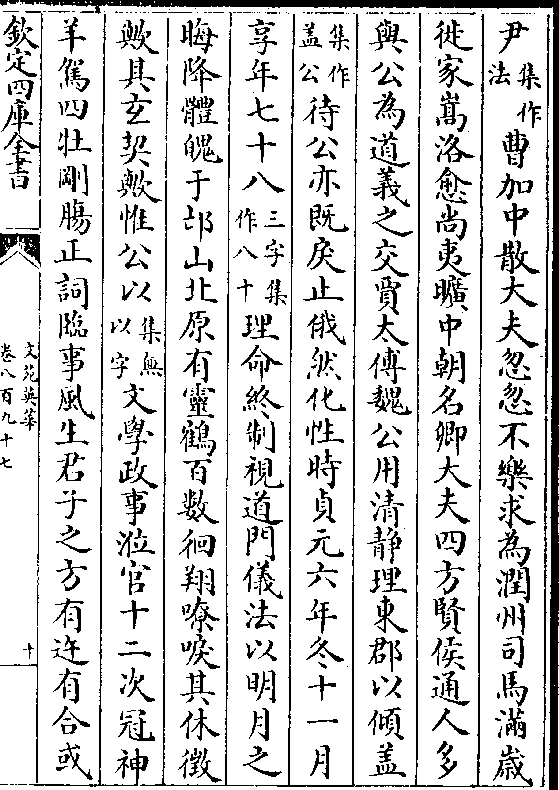 尹集作法曹加中散大夫忽忽不樂求為潤州司馬滿歳
徙家嵩洛愈尚夷曠中朝名卿大夫四方賢侯通人多
與公為道義之交賈太傅魏公用清静理東郡以傾盖
集作盖公待公亦既戾止俄然化性時貞元六年冬十一月
享年七十八三字集作八十理命終制視道門儀法以明月之
晦降體魄于邙山北原有靈鶴百數徊翔嘹唳其休徴
歟其玄契歟惟公以集無以字文學政事涖官十二次冠神
羊駕四牡剛腸正詞臨事風生君子之方有迕有合或
欽定四庫全書
文苑英華
卷八百九十七
十